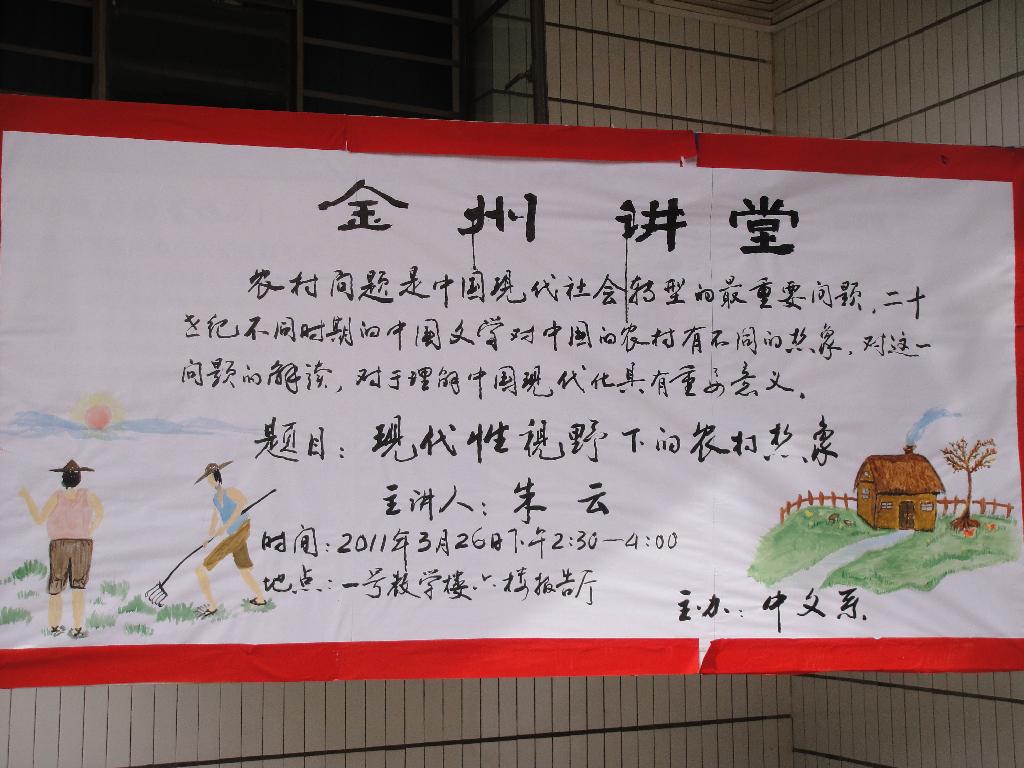 金州讲堂
农村问题是中国现代社会转型的最重要问题，二十
世纪不同时期的中国文学对中国的农村有不同的想象，对这一
问题的解读，对于理解中国现代化具有重要意义。
题目：现代性视野下的农村想象
主讲人：朱云
时间：2011年3月26日下午2:30—4:00
地点：一号教学楼六楼报告厅
主办：中文系